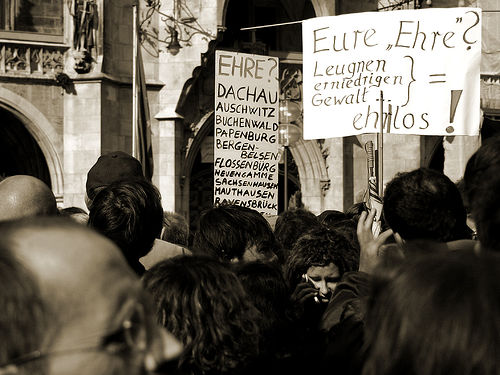 EHRE?
DACHAU
AUSCHWITZ
BUCHENWALD
PAPENBURG
BERGEN-
BELSEN
FLOSSENBURG
NEUENGAMME
SACHSENHAUSEN
MAUTHAUSEN
RAVENSBRÜCK
Eure „Ehre“?
Leugnen
erniedrigen } =
Gewalt
ehrlos!